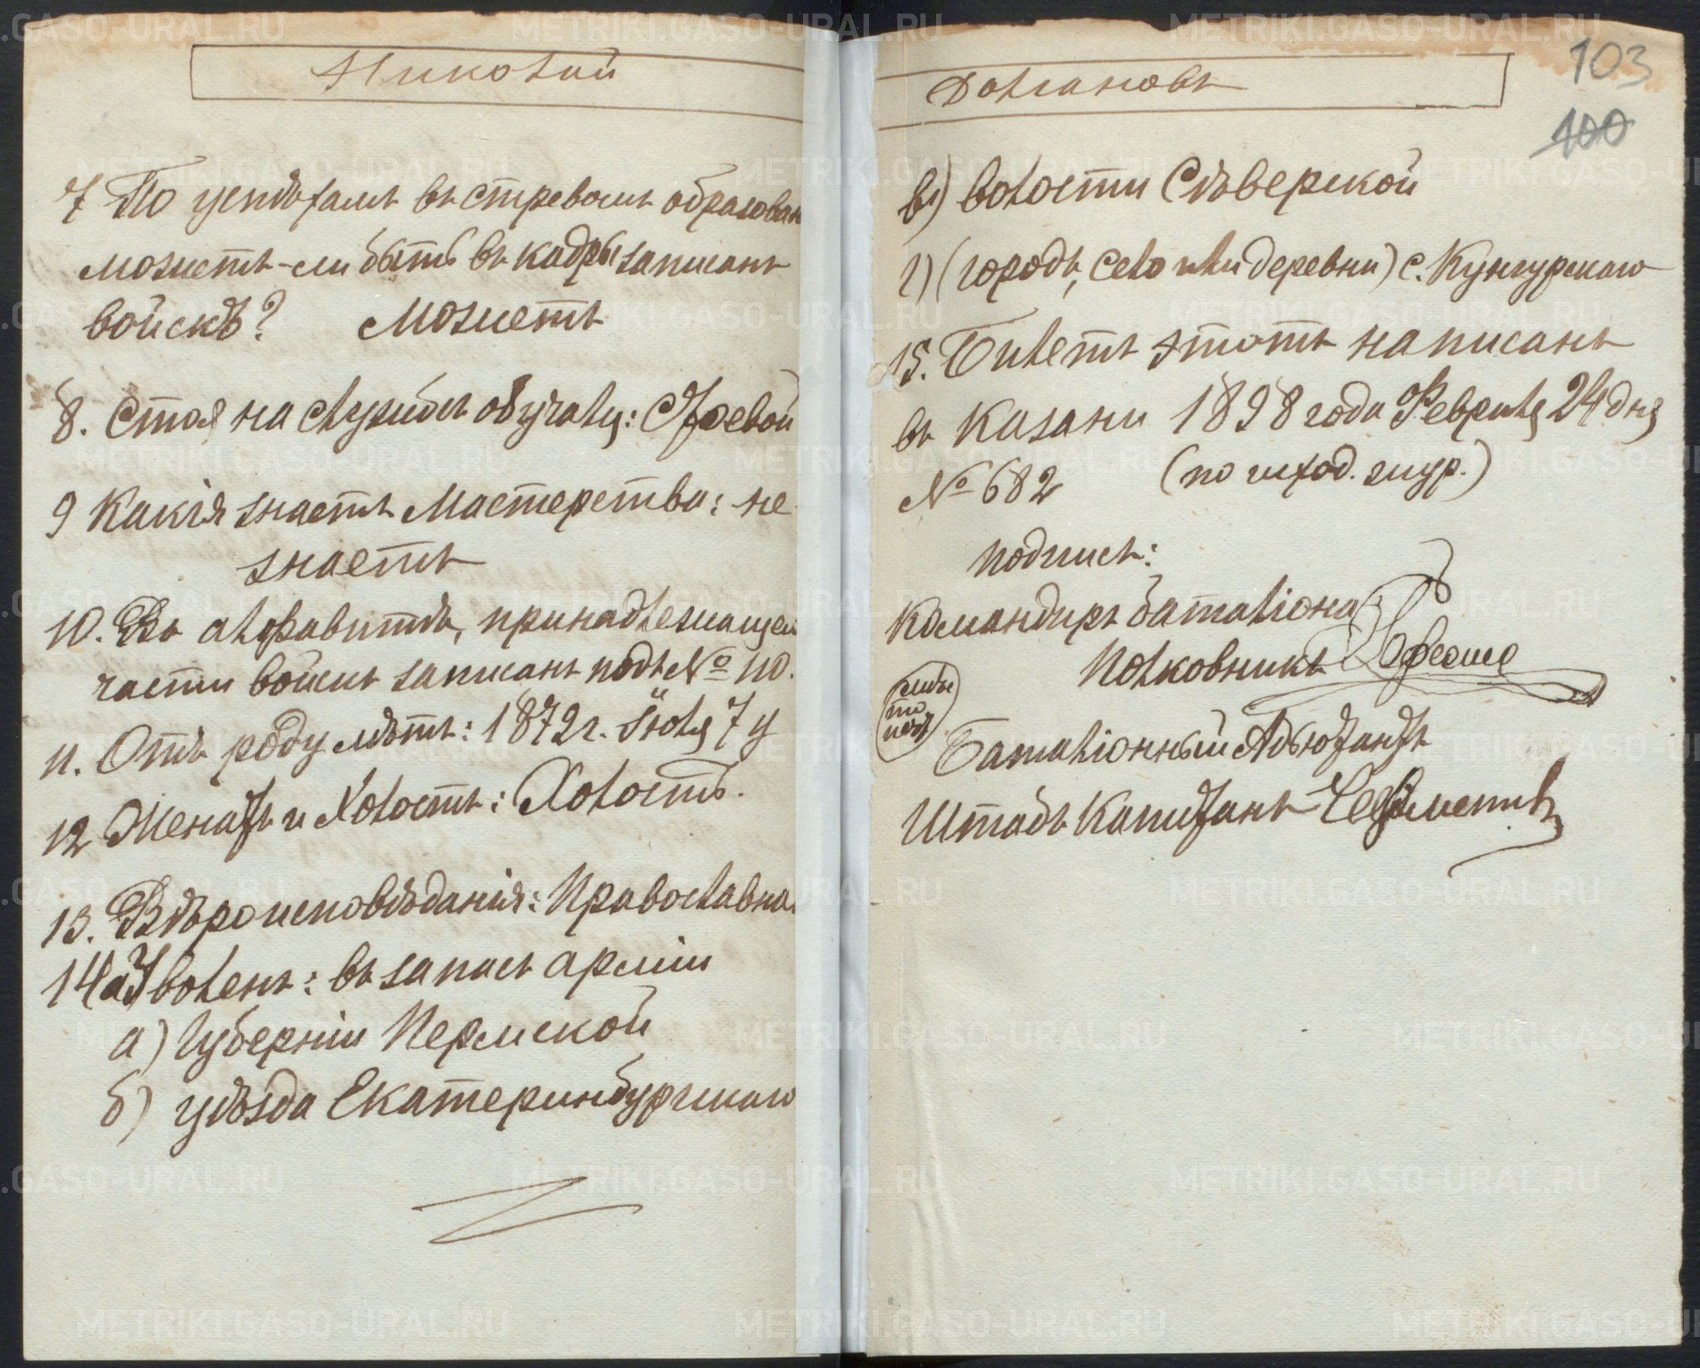 Николай
7 По успѣхамъ въ строевомъ образован
можетъ-ли быть въ кадры записанъ
войскъ? Можетъ
8. Стоя на службѣ обучалъ: Строевой
9 Какія знаетъ Мастерства: не
знаетъ
10. Въ алфавитѣ, принадлежащей
части войскъ записанъ подъ № 110.
11. Отъ роду лѣтъ: 1872 г. Іюля 7 ч
12 Женатъ и Холостъ: Холостъ.
13. Вѣроисповѣданія: Православна
14 Уволенъ: въ запасъ арміи
а) Губерніи Пермской
б) уѣзда Екатеринбургскаго
Долгановъ
103
100
в) волости Сѣверской
г) (городъ, село или деревни) с. Кунгурскаго
15. Билетъ этотъ написанъ
въ Казани 1898 года Февраля 24 дня
№ 682 (по исход. жур.)
подпись:
Командиръ баталіона
Полковникъ
Баталіонный Адъютантъ
Штабъ Капитанъ
METRIKI.GASO-URAL.RU